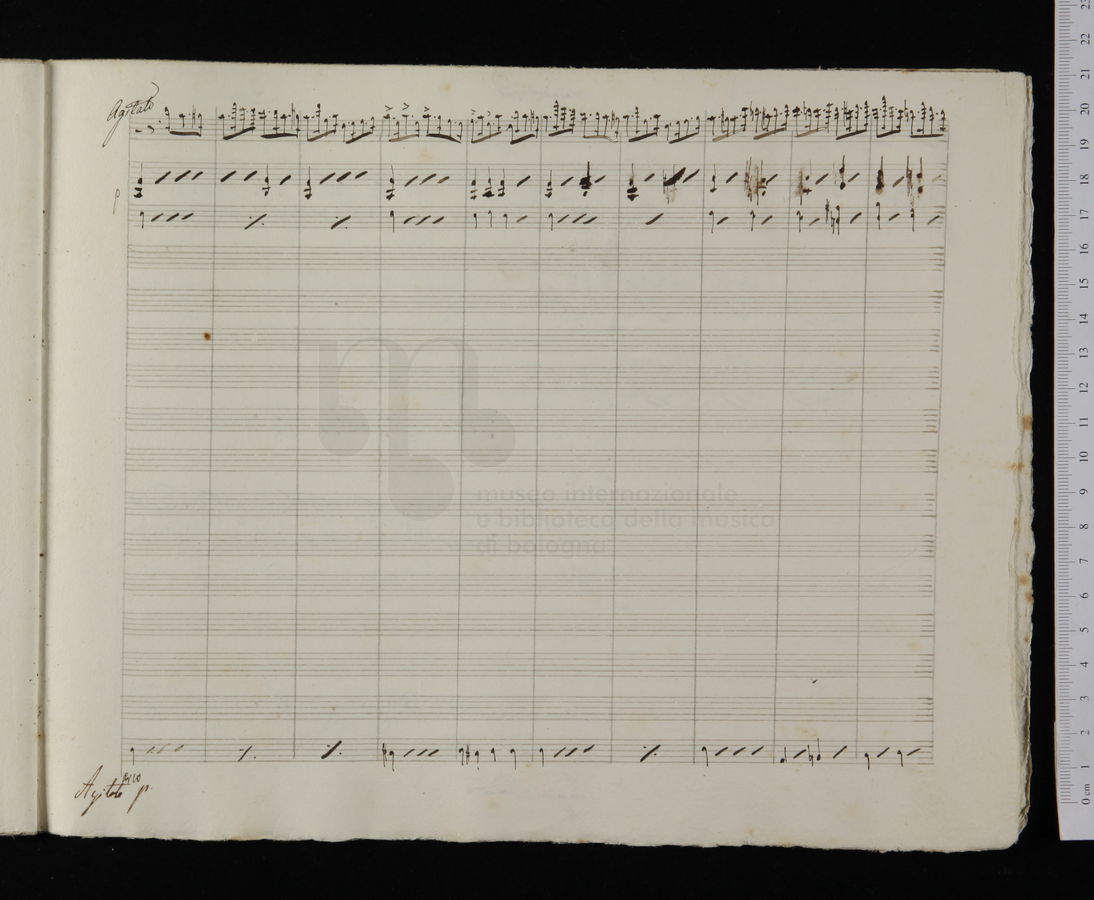 Agitato
p
museo internazionale
e biblioteca della musica
di bologna
Agitato p.
0 cm 1 2 3 4 5 6 7 8 9 10 11 12 13 14 15 16 17 18 19 20 21 22 23